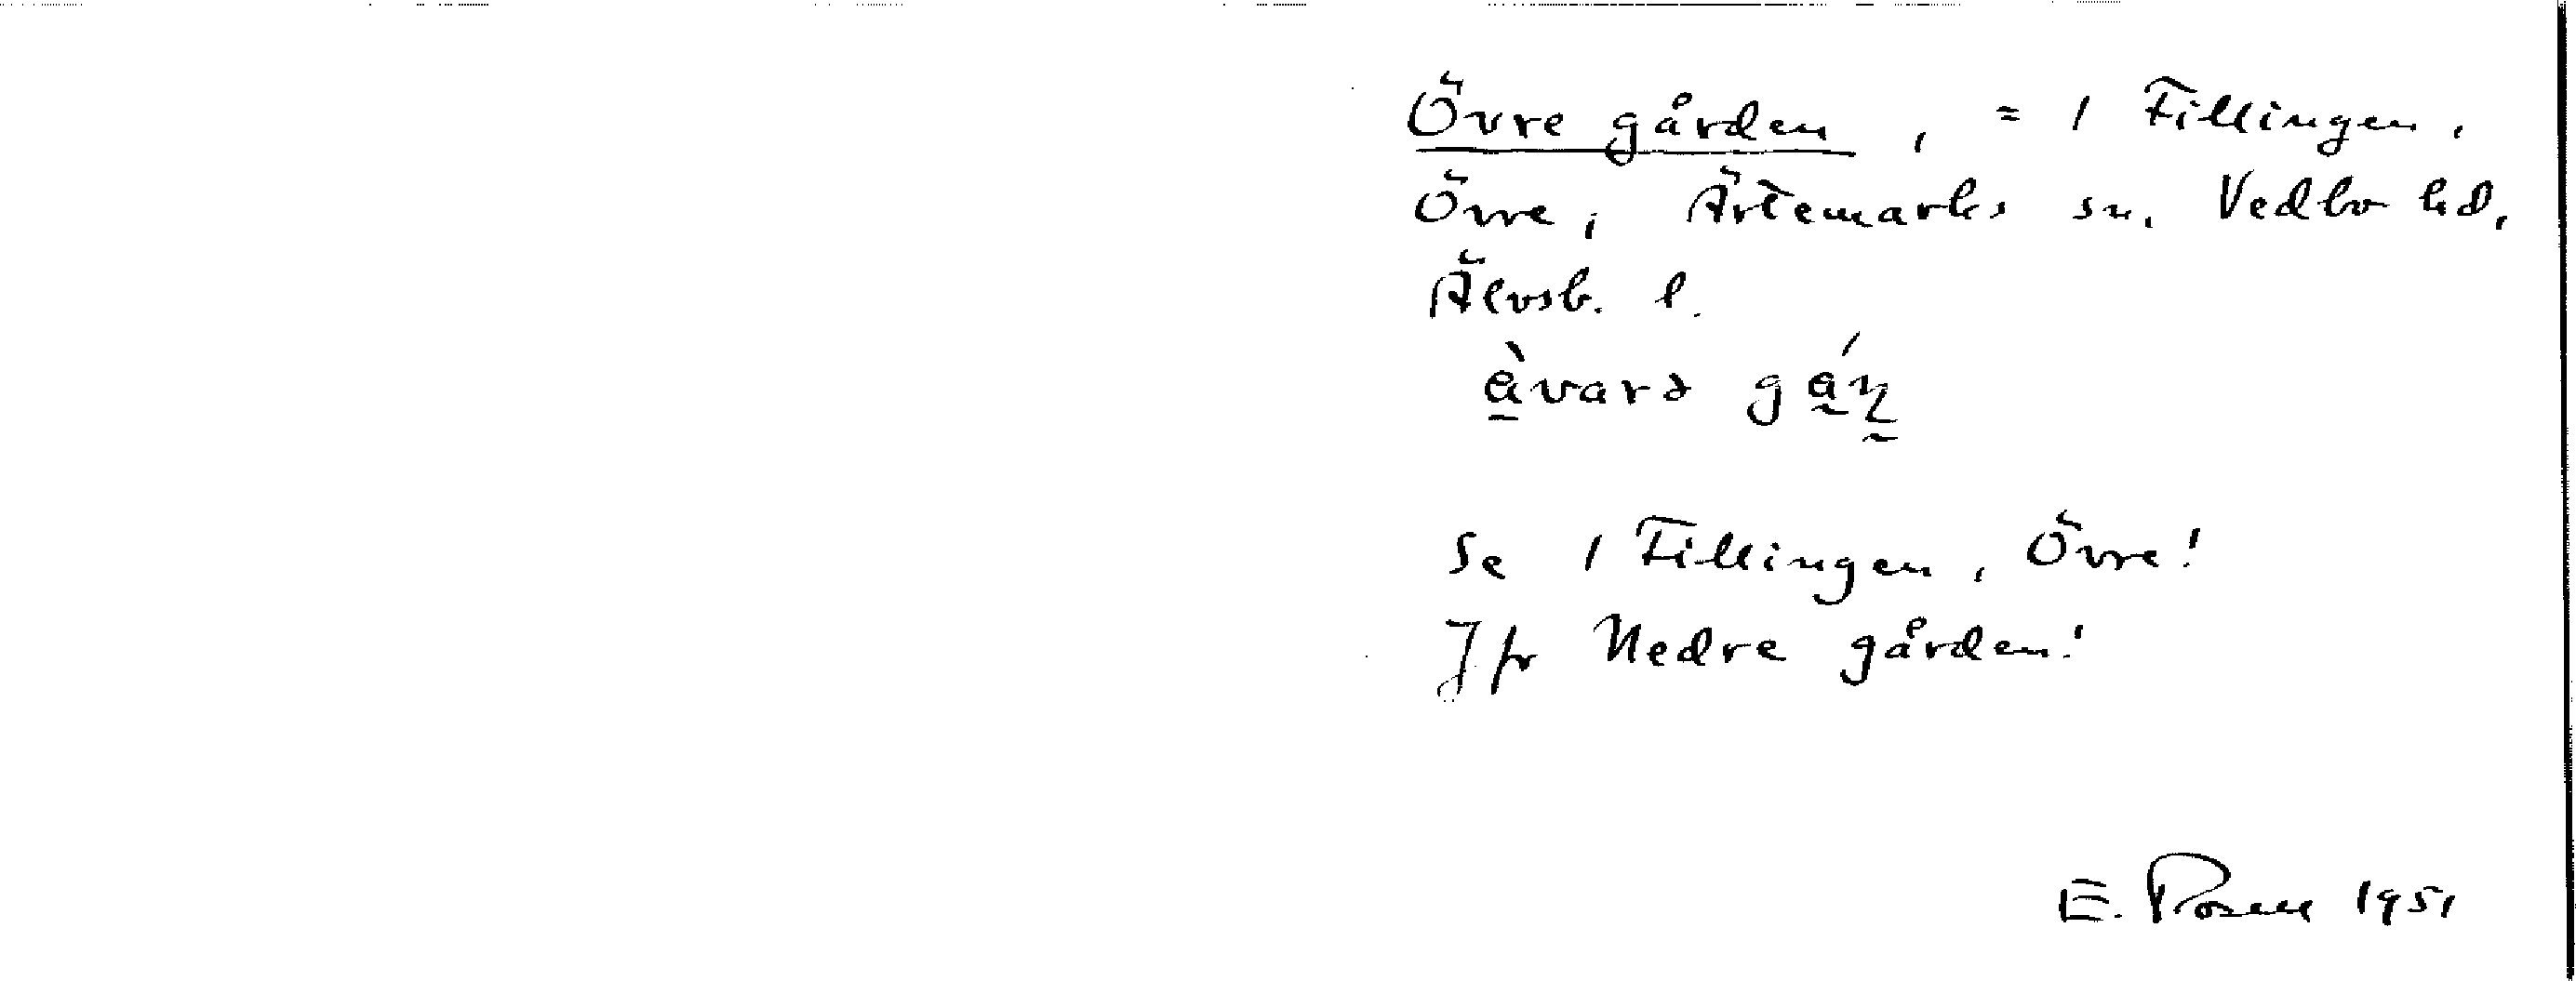 Övre gården, = 1 Fillingen,
Övre, Ärtemarks sn, Vedbo hd,
Älvsb. l.
Se 1 Fillingen, Övre!
Jfr Nedre gården!
E. Rosell 1951